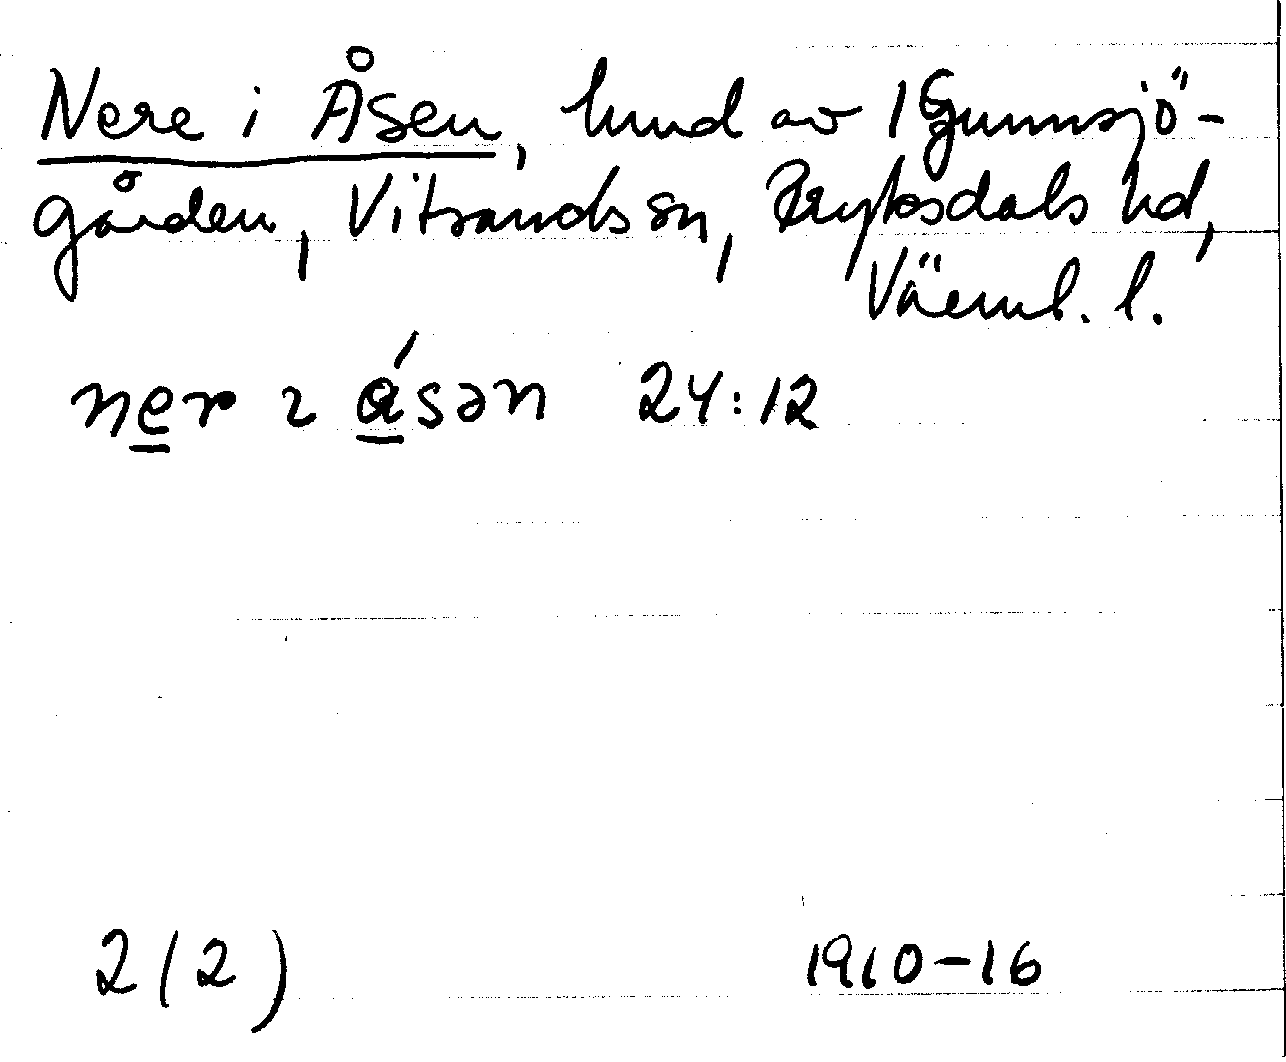 Nere i Åsen, hmd av 1 Gunnsjö-
gården, Vitsands sn, Fryksdals hd,
Värml. l.
ner ɩ ásən 24:12
2(2) 1910-16